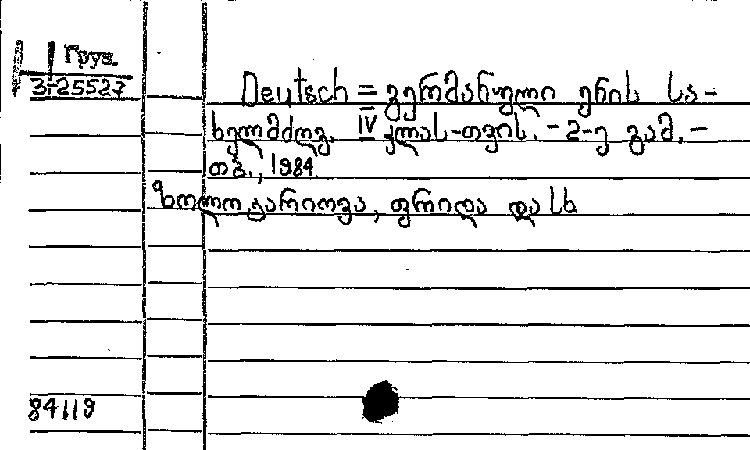 Груз.
3-25527
Deutsch = გერმანული ენის სა-
ხელმძღვ. IV კლას-თვის. - 2-ე გამ. -
თბ., 1984
ზოლოტარიოვა, ფრიდა და სხ
84119